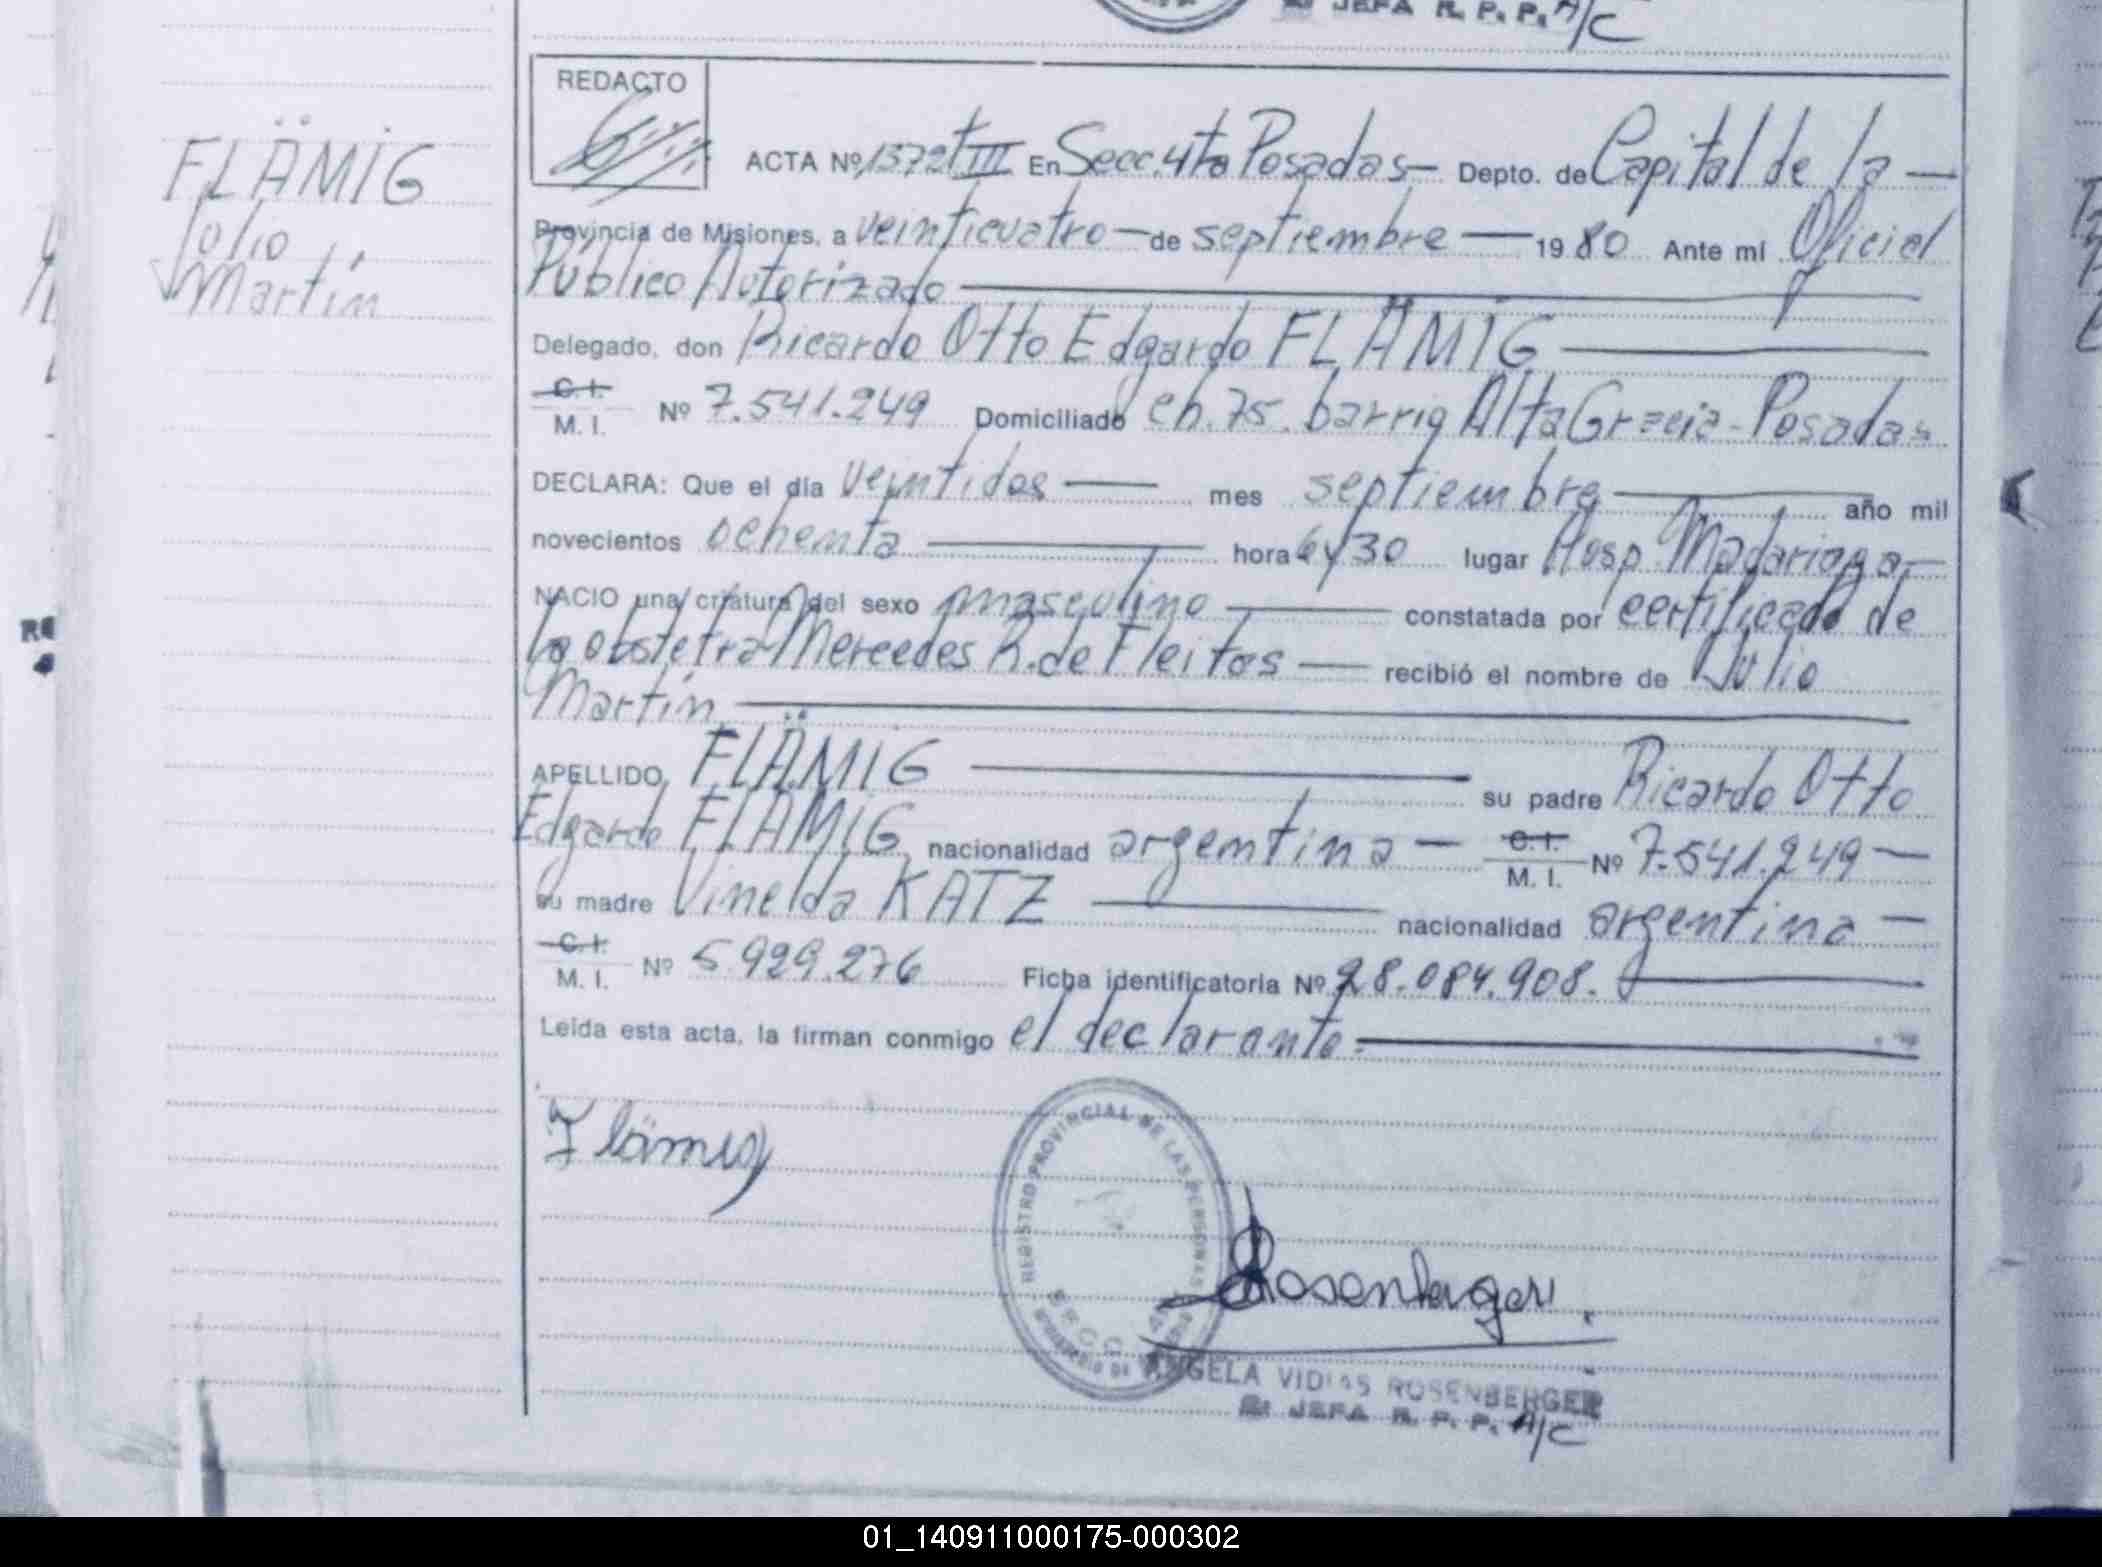 JEFA R. P. P. A/C
REDACTO
FLÄMIG
Julio
Martín
ACTA Nº 1372 t III En Secc. 4ta Posadas — Depto. de Capital de la —
Provincia de Misiones, a veinticuatro — de septiembre — 19 80 Ante mí Oficial
Público Autorizado
Delegado, don Ricardo Otto Edgardo FLÄMIG
C. I.
M. I. Nº 7.541.249 Domiciliado ch. 75. barrio Alta Gracia - Posadas
DECLARA: Que el día veintidos — mes septiembre — año mil
novecientos ochenta — hora 6 y 30 lugar Hosp. Madariaga —
NACIO una criatura del sexo masculino — constatada por certificado de
la obstetra Mercedes R. de Fleitas — recibió el nombre de Julio
Martín
APELLIDO FLÄMIG — su padre Ricardo Otto
Edgardo FLÄMIG nacionalidad argentina — C. I. M. I. Nº 7.541.249 —
su madre Vinelda KATZ — nacionalidad argentina —
C. I.
M. I. Nº 5.929.276 Ficha identificatoria Nº 28.084.908.
Leída esta acta, la firman conmigo el declarante.
Flämig
REGISTRO PROVINCIAL DE LAS PERSONAS
Rosenberger
ANGELA VIDIAS ROSENBERGER
JEFA R. P. P. A/C
01_140911000175-000302